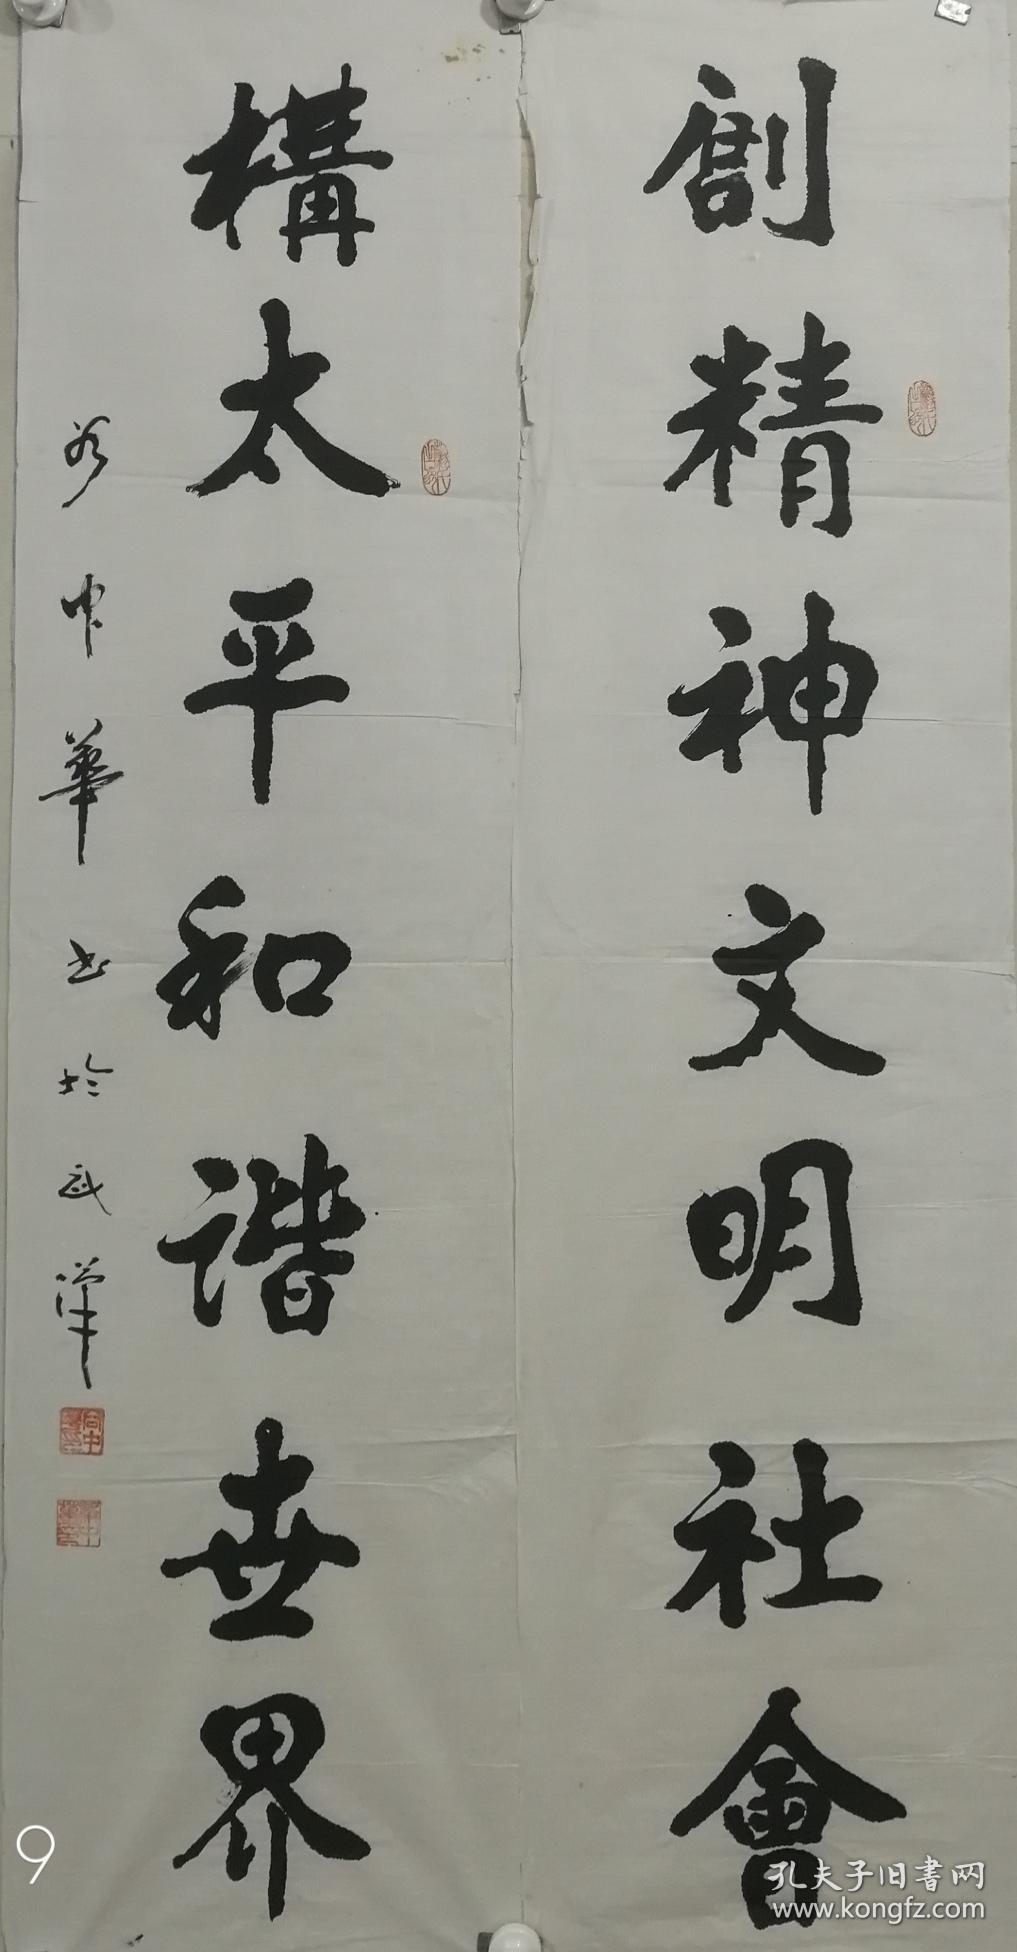 創精神文明社會
構太平和諧世界
中華书於武漢
9
孔夫子旧書网
www.kongfz.com